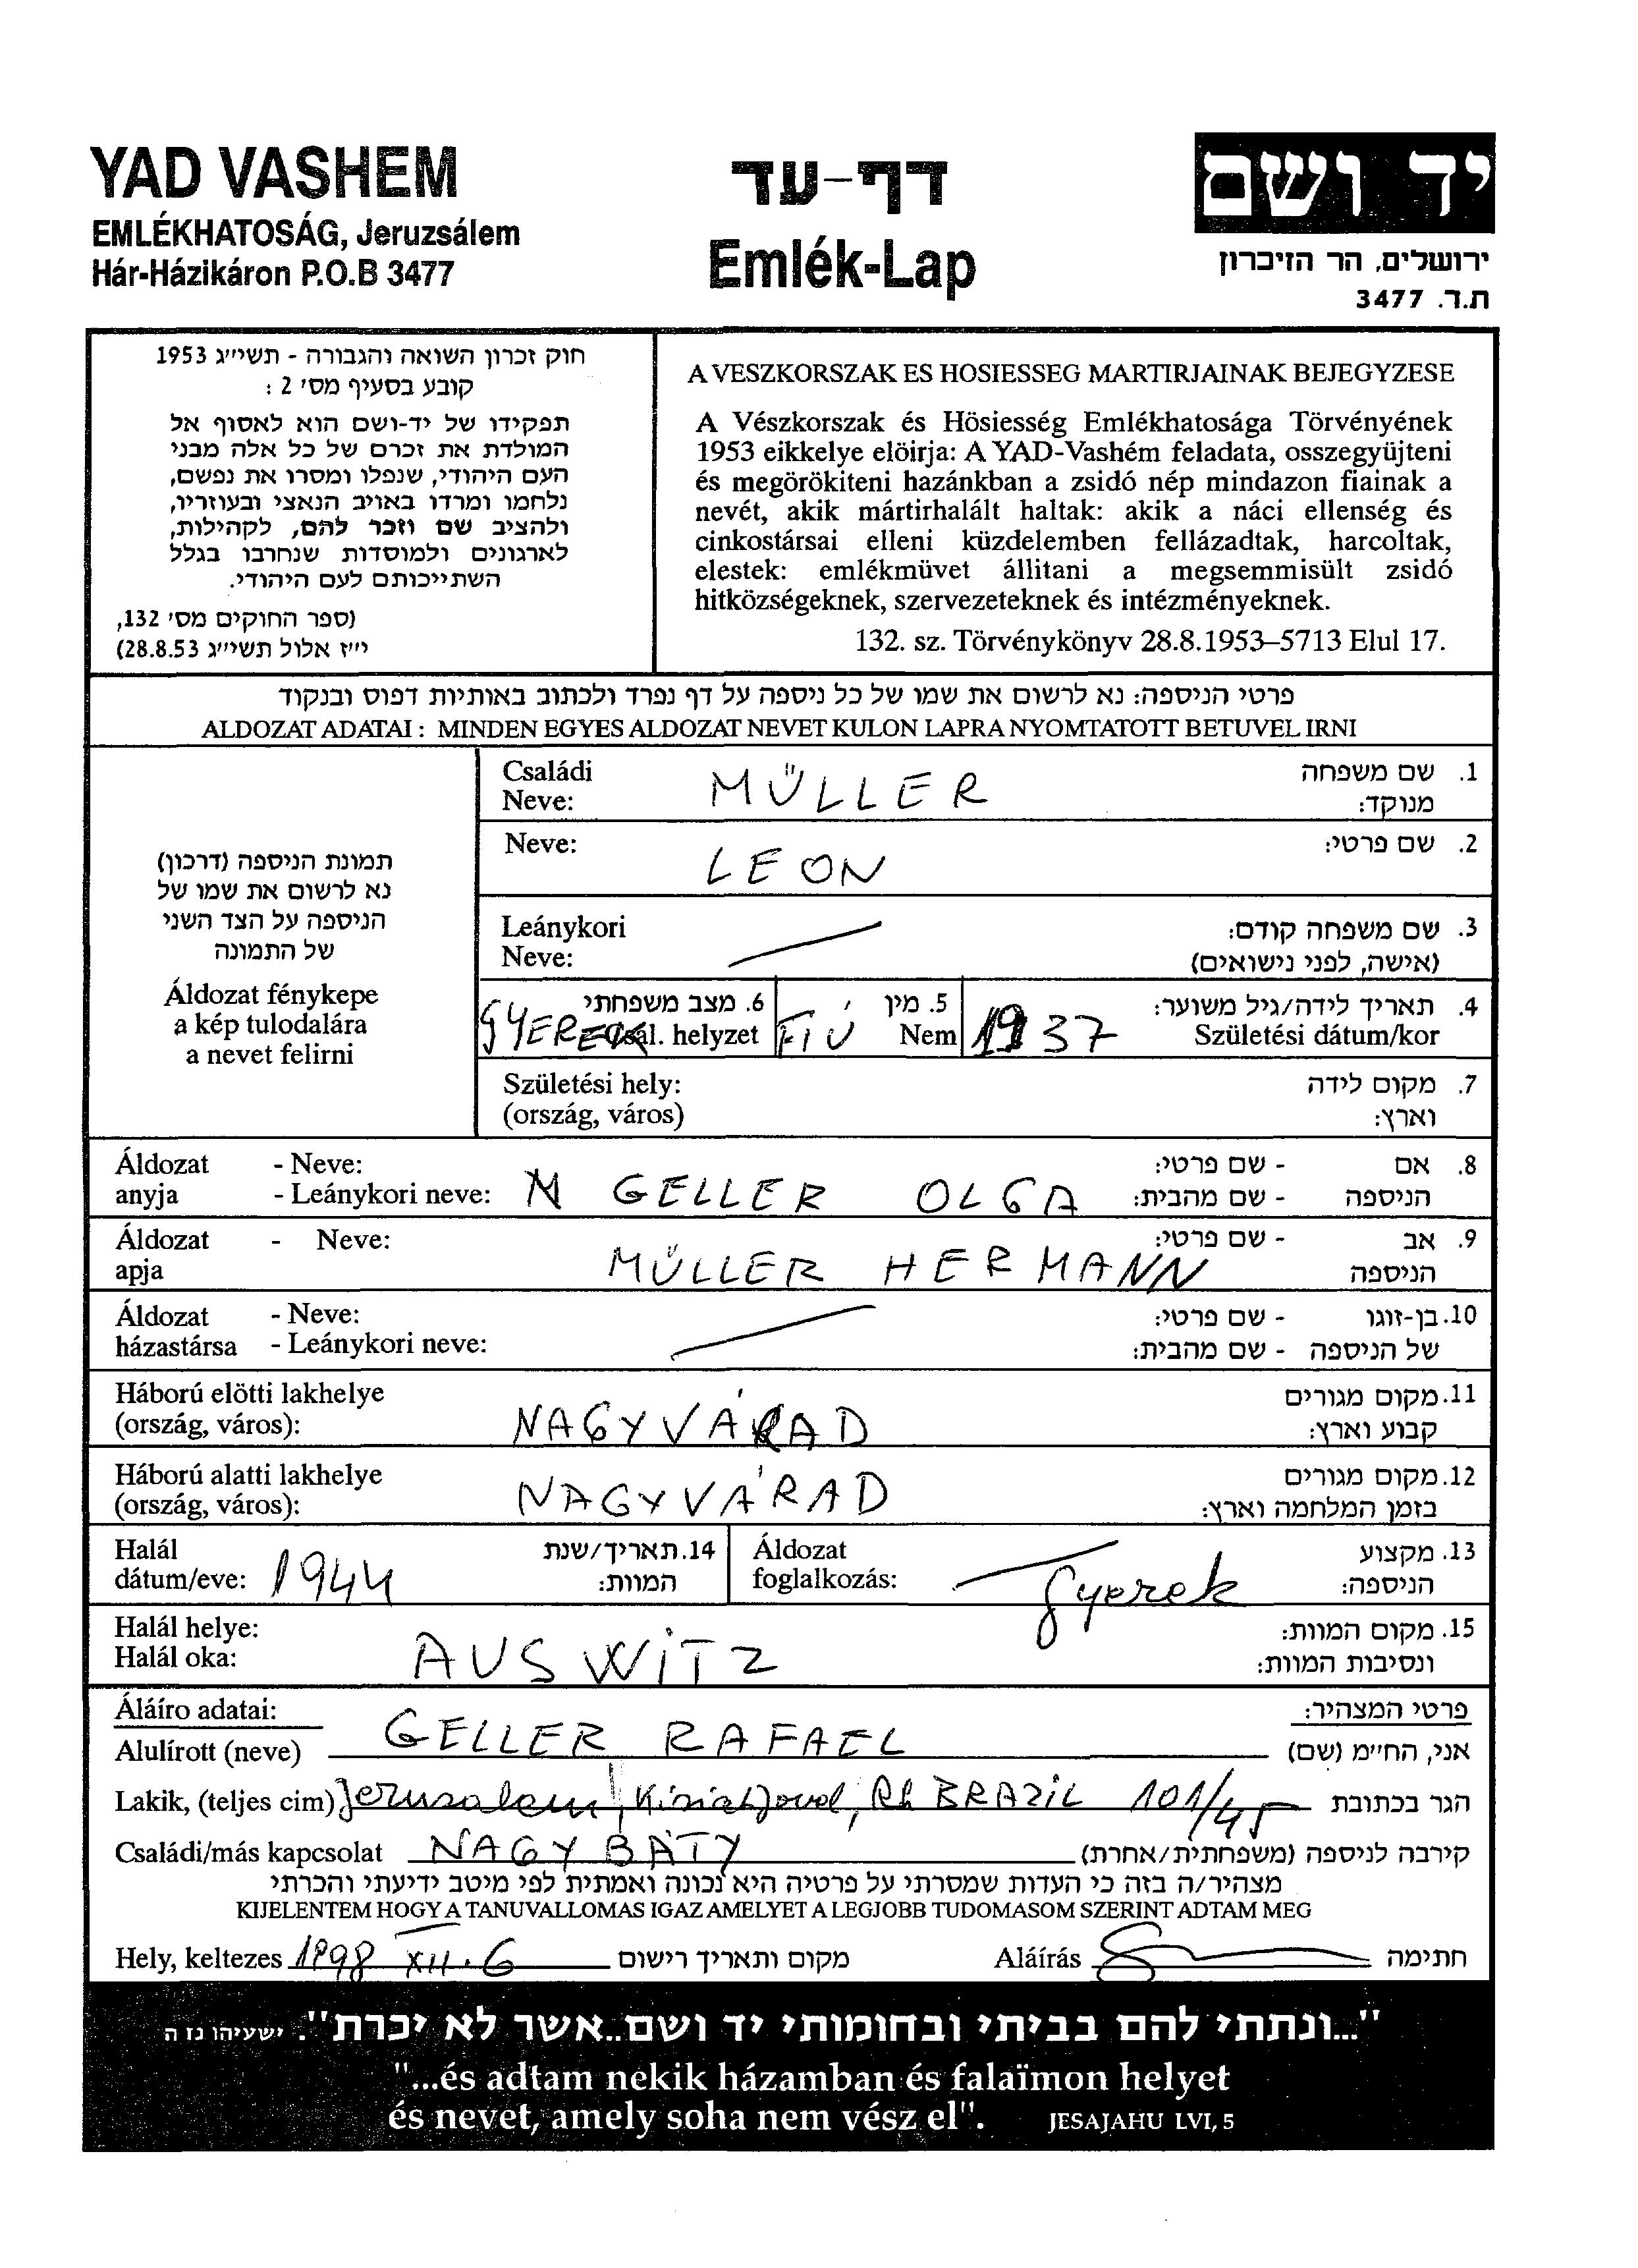 YAD VASHEM
EMLÉKHATOSÁG, Jeruzsálem
Hár-Házikáron P.O.B 3477
דף-עד
Emlék-Lap
יד ושם
ירושלים, הר הזיכרון
ת.ד. 3477
חוק זכרון השואה והגבורה - תשי״ג 1953
קובע בסעיף מס׳ 2 :
תפקידו של יד-ושם הוא לאסוף אל
המולדת את זכרם של כל אלה מבני
העם היהודי, שנפלו ומסרו את נפשם,
נלחמו ומרדו באויב הנאצי ובעוזריו,
ולהציב שם וזכר להם, לקהילות,
לארגונים ולמוסדות שנחרבו בגלל
השתייכותם לעם היהודי.
(ספר החוקים מס׳ 132,
י״ז אלול תשי״ג 28.8.53)
A VESZKORSZAK ES HOSIESSEG MARTIRJAINAK BEJEGYZESE
A Vészkorszak és Hösiesség Emlékhatosága Törvényének
1953 eikkelye elöirja: A YAD-Vashém feladata, osszegyüjteni
és megörökiteni hazánkban a zsidó nép mindazon fiainak a
nevét, akik mártirhalált haltak: akik a náci ellenség és
cinkostársai elleni küzdelemben fellázadtak, harcoltak,
elestek: emlékmüvet állitani a megsemmisült zsidó
hitközségeknek, szervezeteknek és intézményeknek.
132. sz. Törvénykönyv 28.8.1953–5713 Elul 17.
פרטי הניספה: נא לרשום את שמו של כל ניספה על דף נפרד ולכתוב באותיות דפוס ובנקוד
ALDOZAT ADATAI : MINDEN EGYES ALDOZAT NEVET KULON LAPRA NYOMTATOTT BETUVEL IRNI
תמונת הניספה (דרכון)
נא לרשום את שמו של
הניספה על הצד השני
של התמונה
Áldozat fénykepe
a kép tulodalára
a nevet felirni
Családi MÜLLER 1. שם משפחה
Neve: מנוקד:
Neve: LEON 2. שם פרטי:
Leánykori 3. שם משפחה קודם:
Neve: (אישה, לפני נישואים)
6. מצב משפחתי 5. מין 4. תאריך לידה/גיל משוער:
GYEREK Csal. helyzet FIÚ Nem 1937 Születési dátum/kor
Születési hely: 7. מקום לידה
(ország, város) וארץ:
Áldozat - Neve: - שם פרטי: 8. אם
anyja - Leánykori neve: M GELLER OLGA - שם מהבית: הניספה
Áldozat - Neve: - שם פרטי: 9. אב
apja MÜLLER HERMANN הניספה
Áldozat - Neve: - שם פרטי: 10. בן-זוגו
házastársa - Leánykori neve: - שם מהבית: של הניספה
Háború elötti lakhelye 11. מקום מגורים
(ország, város): NAGYVÁRAD קבוע וארץ:
Háború alatti lakhelye 12. מקום מגורים
(ország, város): NAGYVÁRAD בזמן המלחמה וארץ:
Halál 14. תאריך/שנת Áldozat 13. מקצוע
dátum/eve: 1944 המוות: foglalkozás: Gyerek הניספה:
Halál helye: 15. מקום המוות:
Halál oka: AUSWITZ ונסיבות המוות:
Áláíro adatai: פרטי המצהיר:
Alulírott (neve) GELLER RAFAEL אני, החי״מ (שם)
Lakik, (teljes cim) Jerusalem, Kiriat Jovel, Rh BRAZIL 101/45 הגר בכתובת
Családi/más kapcsolat NAGY BÁTY קירבה לניספה (משפחתית/אחרת)
מצהיר/ה בזה כי העדות שמסרתי על פרטיה היא נכונה ואמתית לפי מיטב ידיעתי והכרתי
KIJELENTEM HOGY A TANUVALLOMAS IGAZ AMELYET A LEGJOBB TUDOMASOM SZERINT ADTAM MEG
Hely, keltezes 1898 XII.6 מקום ותאריך רישום Aláírás חתימה
"...ונתתי להם בביתי ובחומותי יד ושם..אשר לא יכרת". ישעיהו נז ה
"...és adtam nekik házamban és falaïmon helyet
és nevet, amely soha nem vész el". JESAJAHU LVI, 5